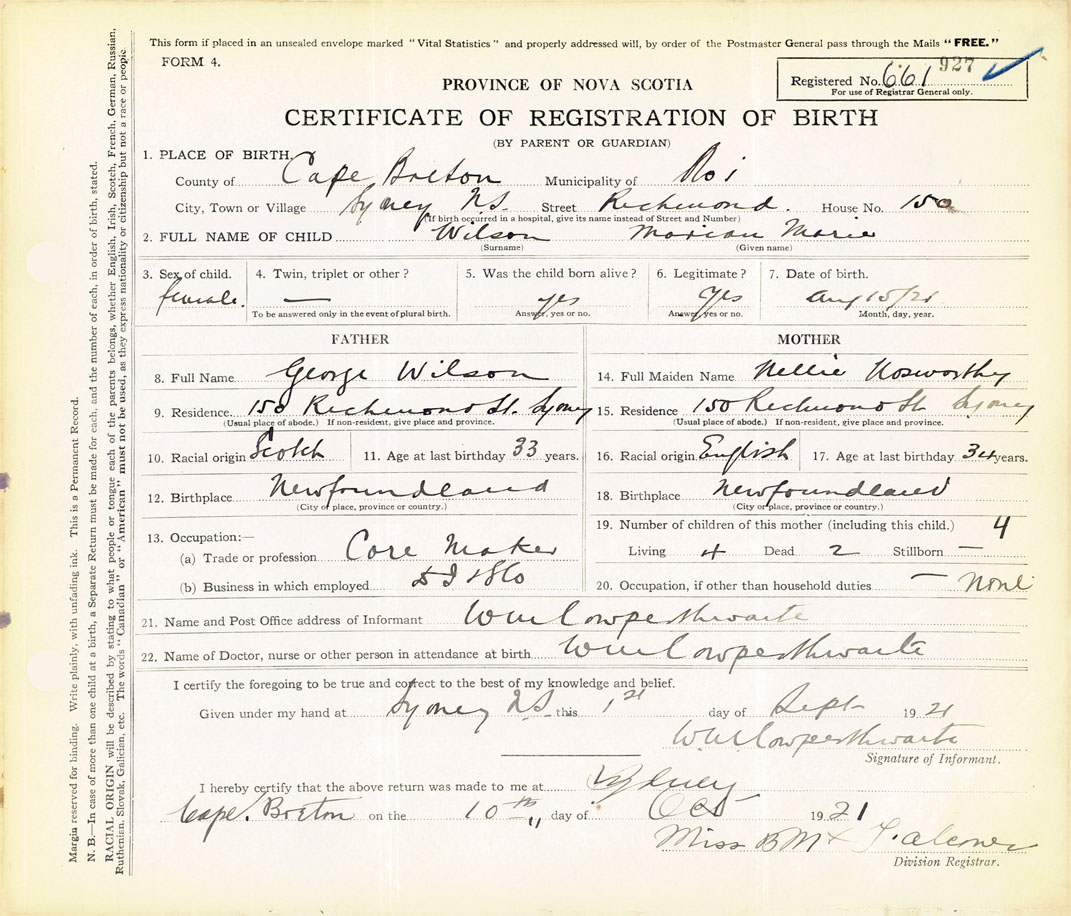 This form if placed in an unsealed envelope marked "Vital Statistics" and properly addressed will, by order of the Postmaster General pass through the Mails "FREE."
FORM 4.
927
Registered No. 661
For use of Registrar General only.
PROVINCE OF NOVA SCOTIA
CERTIFICATE OF REGISTRATION OF BIRTH
(BY PARENT OR GUARDIAN)
1. PLACE OF BIRTH,
County of Cape Breton Municipality of
City, Town or Village Sydney N.S. Street Richmond. House No. 150
(If birth occurred in a hospital, give its name instead of Street and Number)
2. FULL NAME OF CHILD Wilson Marian Marie
(Surname) (Given name)
3. Sex of child. 4. Twin, triplet or other? 5. Was the child born alive? 6. Legitimate? 7. Date of birth.
female. — yes Yes Aug 15/21
To be answered only in the event of plural birth. Answer, yes or no. Answer, yes or no. Month, day, year.
FATHER MOTHER
8. Full Name George Wilson 14. Full Maiden Name Nellie Nosworthy
9. Residence 150 Richmond St. Sydney 15. Residence 150 Richmond St Sydney
(Usual place of abode.) If non-resident, give place and province. (Usual place of abode.) If non-resident, give place and province.
10. Racial origin Scotch 11. Age at last birthday 33 years. 16. Racial origin English 17. Age at last birthday 34 years.
12. Birthplace Newfoundland 18. Birthplace Newfoundland
(City or place, province or country.) (City or place, province or country.)
13. Occupation:— 19. Number of children of this mother (including this child.) 4
(a) Trade or profession Core Maker Living 4 Dead 2 Stillborn —
(b) Business in which employed 20. Occupation, if other than household duties — none
21. Name and Post Office address of Informant Wm Cowperthwaite
22. Name of Doctor, nurse or other person in attendance at birth Wm Cowperthwaite
I certify the foregoing to be true and correct to the best of my knowledge and belief.
Given under my hand at Sydney N.S. this 1st day of Sept 1921
Wm Cowperthwaite
Signature of Informant.
I hereby certify that the above return was made to me at Sydney
Cape Breton on the 10th day of Oct 1921
Miss B M Falconer
Division Registrar.
Margin reserved for binding. Write plainly, with unfading ink. This is a Permanent Record.
N. B.—In case of more than one child at a birth, a Separate Return must be made for each, and the number of each, in order of birth, stated.
RACIAL ORIGIN will be described by stating to what people or tongue each of the parents belongs, whether English, Irish, Scotch, French, German, Russian,
Ruthenian, Slovak, Galician, etc. The words "Canadian" or "American" must not be used, as they express nationality or citizenship but not a race or people.